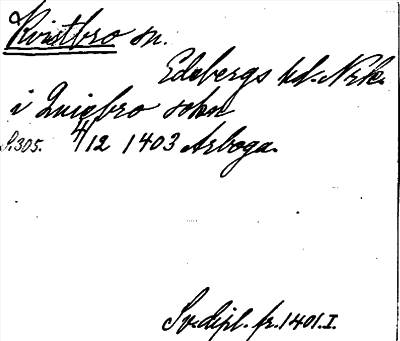 Kvistbro sn.
Edsbergs hd. Nrk.
i Quigbro sokn
S.305. 4/12 1403 Arboga.
Sv. dipl. fr. 1401. I.